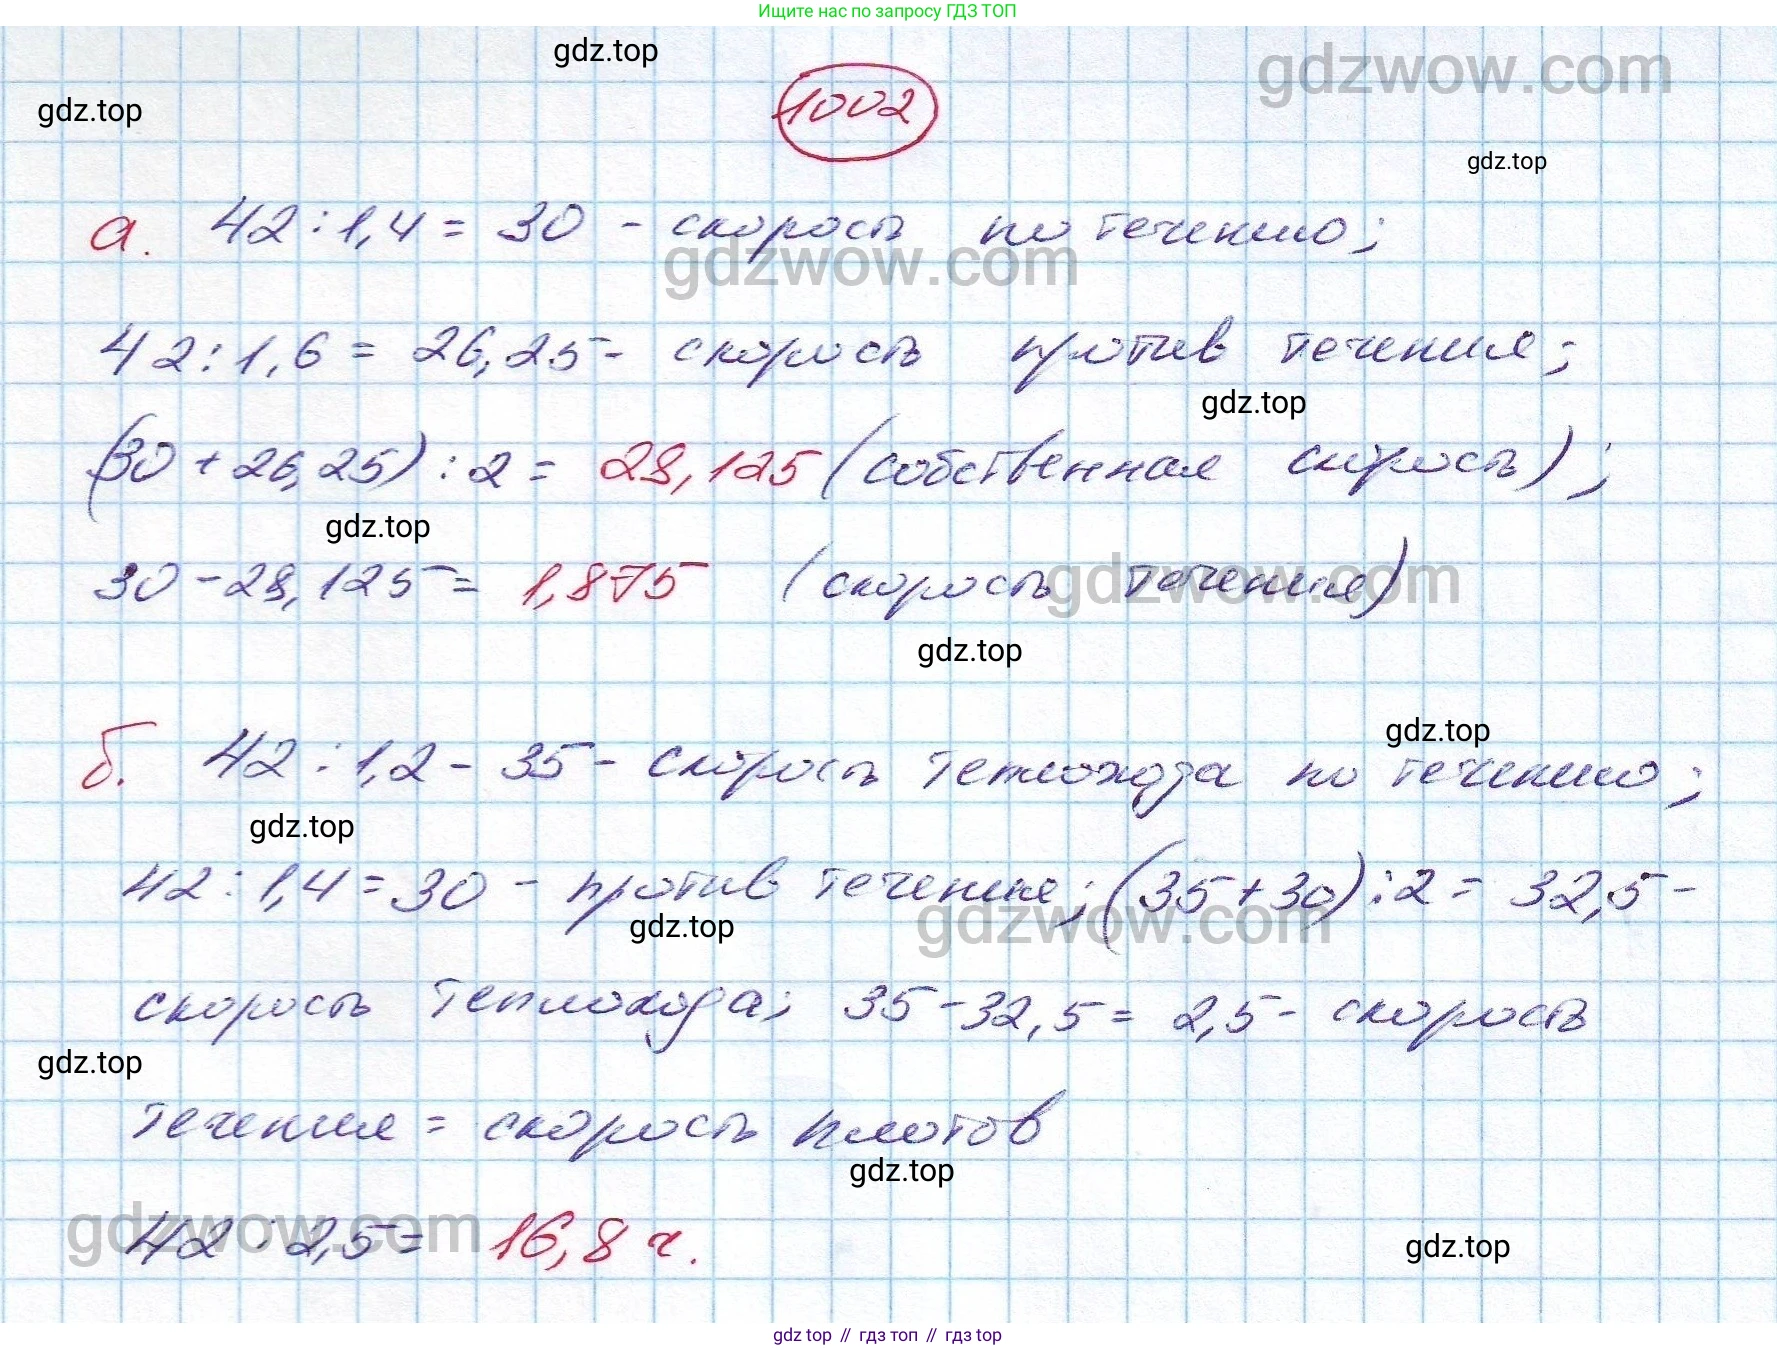 Ищите нас по запросу ГДЗ ТОП
gdz.top
gdzwow.com
gdz.top
1002
gdz.top
а. 42 : 1,4 = 30 - скорость по течению;
gdzwow.com
42 : 1,6 = 26,25 - скорость против течения;
gdz.top
(30 + 26,25) : 2 = 28,125 (собственная скорость);
gdz.top
30 - 28,125 = 1,875 (скорость течения)
gdzwow.com
gdz.top
gdz.top
б. 42 : 1,2 - 35 - скорость теплохода по течению;
gdz.top
42 : 1,4 = 30 - против течения; (35 + 30) : 2 = 32,5 -
gdz.top
gdzwow.com
скорость теплохода; 35 - 32,5 = 2,5 - скорость
gdz.top
течения = скорость плотов
gdz.top
gdzwow.com
42 : 2,5 = 16,8 ч.
gdz.top
gdz.top // гдз топ // гдз top